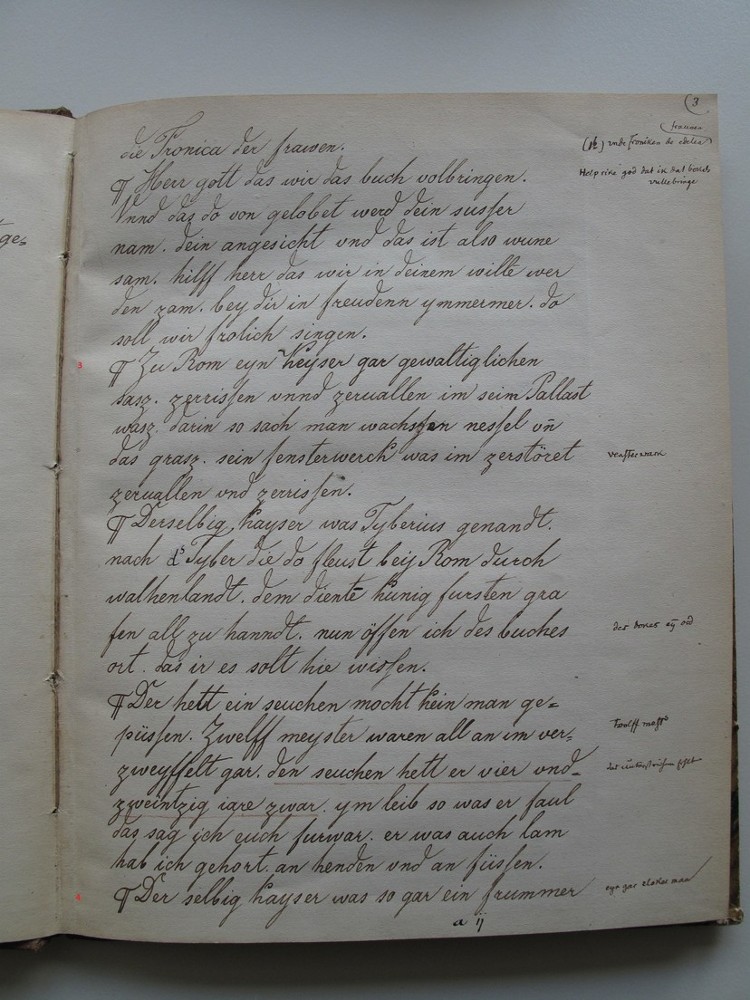 3
die Cronica der frawen.
frauen
(ib) unde Croniken de edelen
¶ Herr gott das wir das buch volbringen.
Help rike god dat ik dat boek
vullebringe
Vnnd das do von gelobet werd dein susser
nam. dein angesicht vnd das ist also wune
sam. hilff herr das wir in deinem wille wer
den zam. bey dir in freudenn ymmermer. do
soll wir frolich singen.
3
¶ Zu Rom eyn keyser gar gewaltiglichen
sasz. zerrissen vnnd zeruallen im seim Pallast
wasz. darin so sach man wachssen nessel vn̄
das grasz. sein fensterwerck was im zerstöret
vensterwark
zeruallen vnd zerrissen.
¶ Derselbig kayser was Tyberius genandt.
nach d' Tyber die do fleust bey Rom durch
walhenlandt. dem diente kunig fursten gra
fen all zu hanndt. nun öffen ich des buches
ort. das ir es solt hie wissen.
¶ Der hett ein seuchen mocht kein man ge=
püssen. Zwelff meyster waren all an im ver=
zweyffelt gar. den seuchen hett er vier vnd=
zweintzig iare zwar. ym leib so was er faul
das sag ich euch furwar. er was auch lam
hab ich gehort. an henden vnd an füssen.
4
¶ Der selbig kayser was so gar ein frummer
a ij